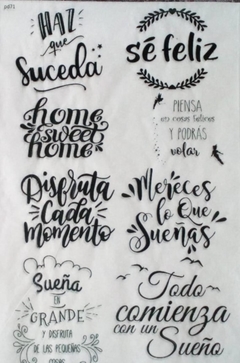 HAZ
que
Suceda
sé feliz
home
sweet
home
PIENSA
en cosas felices
Y PODRÁS
volar
Disfruta
Cada
Momento
Mereces
lo Que
Sueñas
Sueña
EN
GRANDE
Y DISFRUTA
DE LAS PEQUEÑAS
COSAS
Todo
comienza
con un
Sueño